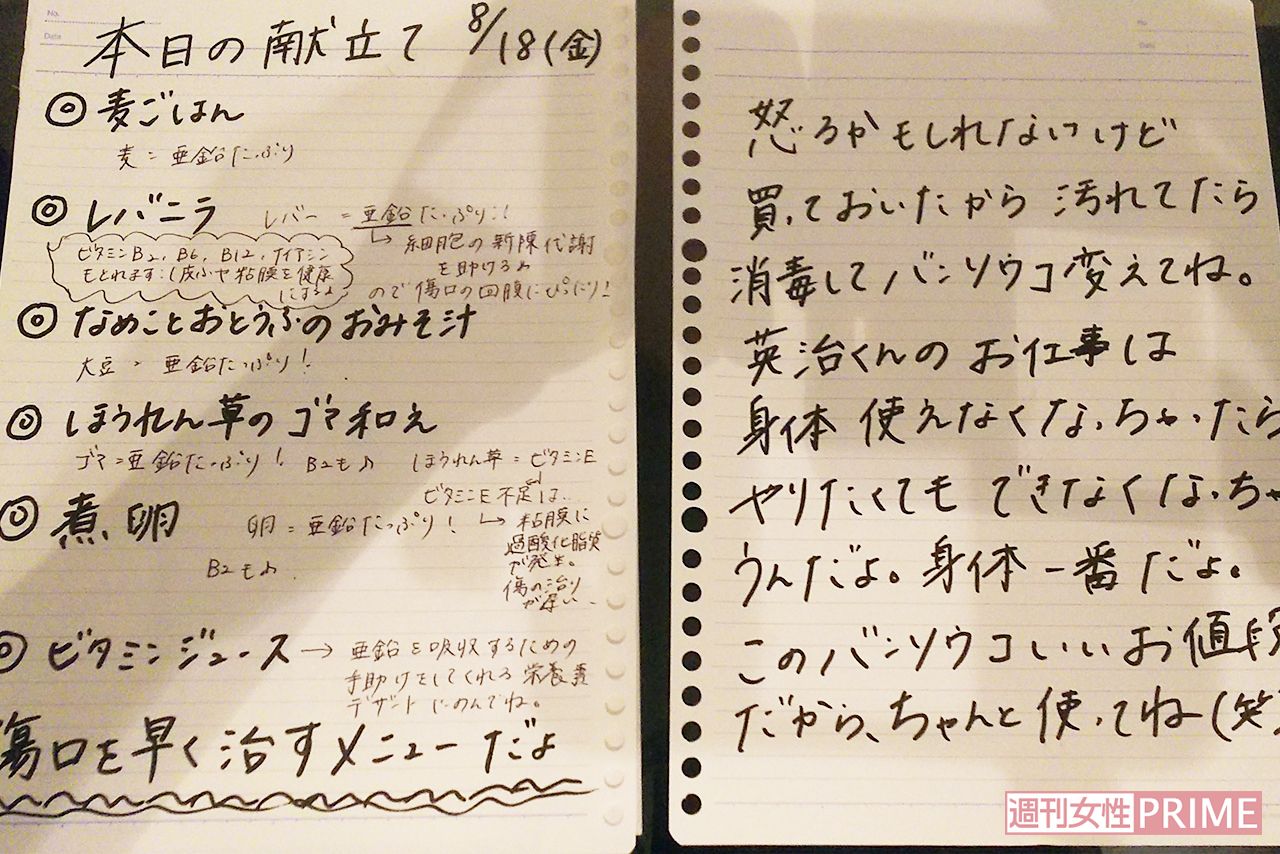 No.
Date
本日の献立て 8/18(金)
◎麦ごはん
麦=亜鉛たっぷり
◎レバニラ
レバー=亜鉛たっぷり!!
↳細胞の新陳代謝
を助ける♪
ので傷口の回腹にぴったり!
ビタミンB2, B6, B12, ナイアシン
もとれます:)皮ふや粘膜を健康
にする♪
◎なめことおとうふのおみそ汁
大豆=亜鉛たっぷり!
◎ほうれん草のゴマ和え
ゴマ=亜鉛たっぷり! B2も♪ ほうれん草=ビタミンE
ビタミンE不足は、
↳粘膜に
過酸化脂質
が発生。
傷の治り
が遅い、
◎煮卵
卵=亜鉛たっぷり!
B2も♪
◎ビタミンジュース→亜鉛を吸収するための
手助けをしてくれる栄養素
デザートにのんでね。
傷口を早く治すメニューだよ
No.
Date
怒るかもしれないけど
買っておいたから汚れてたら
消毒してバンソウコ変えてね。
英治くんのお仕事は
身体使えなくなっちゃったら
やりたくてもできなくなっちゃ
うんだよ。身体一番だよ。
このバンソウコいいお値段
だから、ちゃんと使ってね(笑)
週刊女性PRIME